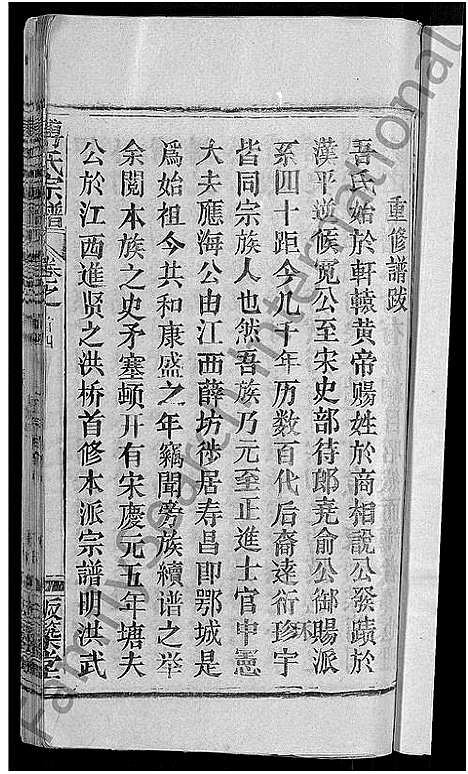 重修譜跋
吾氏始於軒轅黄帝賜姓於商相說公發蹟於
漢平逆候寛公至宋史部待郎尭俞公御賜派
系四十距今几十年历数百代后裔逺衍珎宇
环
皆同宗族人也然吾族乃元至正進士官中憲
大夫應海公由江西薛坊徙居寿昌即鄂城是
爲始祖今共和康盛之年竊聞旁族續谱之举
余閲本族之史矛塞顿开有宋慶元五年塘夫
公於江西進贤之洪桥首修本派宗譜明洪武
傅氏宗譜
卷之一
四
版築堂
FamilySearch International